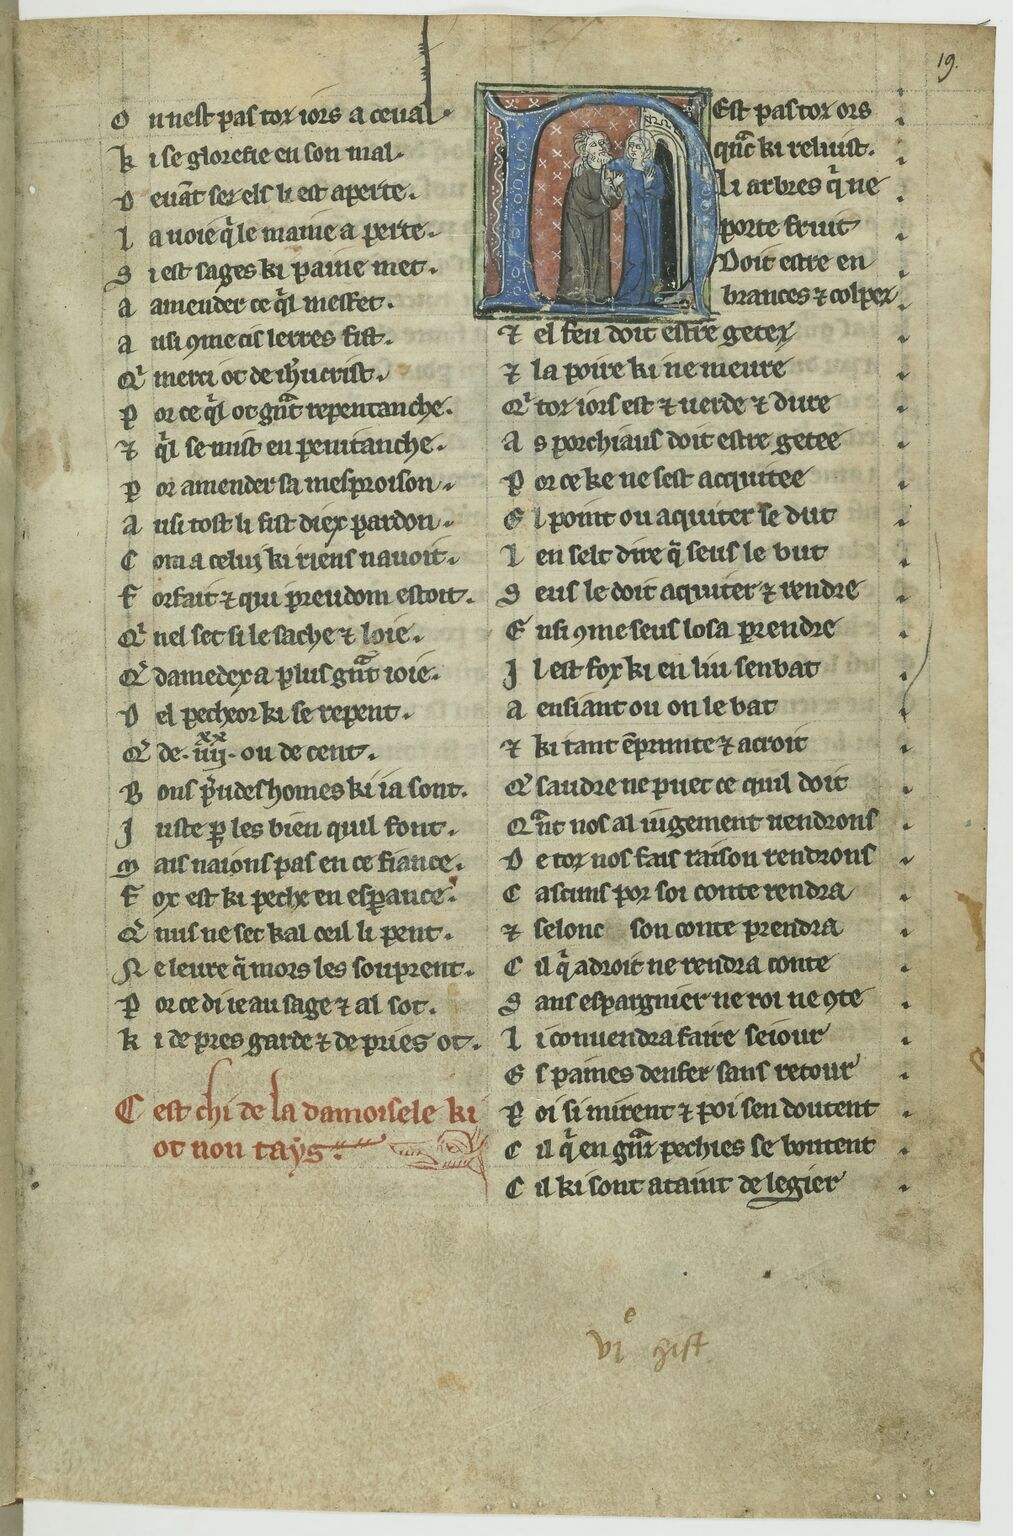 19.
O n nest pas tox iors a ceual.
k i se glorefie en son mal.
D euāt ses els li est aperte.
l a uoie q̄ le mainie a perte.
S i est sages ki paine met.
a amender ce q̄l mesfet.
a usi 9me cis lerres fist.
Q' merci ot de ih'ucrist.
P or ce q̄l ot gnāt repentanche.
⁊ q̄l se mist en penitanche.
p or amender sa mesproison.
A usi tost li fist diex pardon.
C om a celui ki riens nauoit.
F orfait ⁊ qui preudom estoit.
Q' nel set si le sache ⁊ loie.
Q' damedex a plus gnāt ioie.
D el pecheor ki se repent.
Q' de .iiij.xx ou de cent.
B ons p̄udeshomes ki ia sont.
J uste p les bien quil font.
M ais naions pas en ce fiance.
F ox est ki peche en esperance.
Q' nus ne set kal oeil li pent.
N e leure q̄ mors les souprent.
P or ce di ie au sage ⁊ al sot.
k i de pres garde ⁊ de pries ot.
C est chi de la damoisele ki
ot non tays.
N Est pas tox ors
qnc̄ ki reluist.
Li arbres q̄ ne
porte fruit
Doit estre en
brances ⁊ colper
⁊ el feu doit estre getex
⁊ la poire ki ne meure
Q' tox iors est ⁊ uerde ⁊ dure
A s porchiaus doit estre getee
P or ce ke ne sest acquitee
E l point ou aquiter se dut
l en selt dire q̄ seus le but
S eus le doit aquiter ⁊ rendre
E nsi 9me seus losa prendre
J l est fox ki en liu senbat
a ensiant ou on le bat
⁊ ki tant ēprunte ⁊ acroit
Q' saudre ne puet ce quil doit
Q ānt nos al iugement uendrons
D e tox nos fais raison rendrons
C ascuns por soi conte rendra
⁊ selonc son conte prendra
C il q̄ adroit ne rendra conte
S ans espargnier ne roi ne 9te
l i conuendra faire seiour
E s paines denfer sans retour
P oi si mirent ⁊ poi sen doutent
C il q̄ en gnār pechies se boutent
C il ki sont ataint de legier
vi e hist